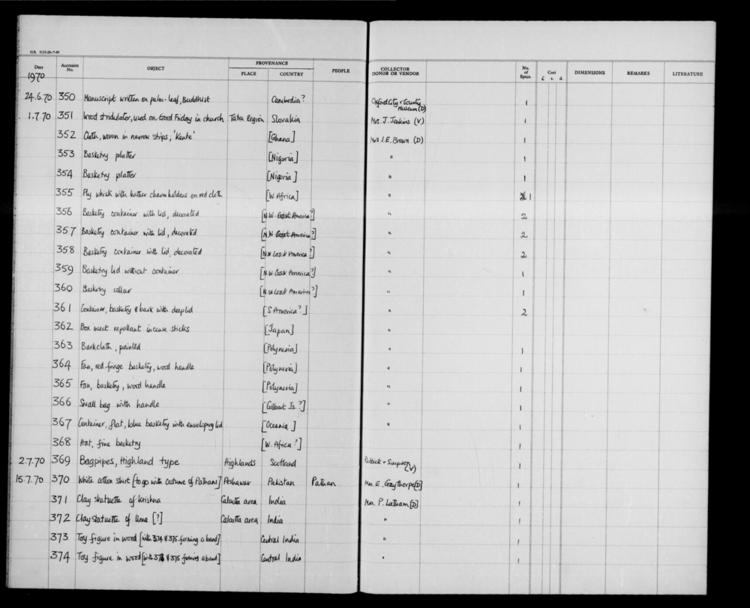 DATE Accession No. OBJECT PROVENANCE PEOPLE COLLECTOR DONOR OR VENDOR No. of Specs. Cost £ s d DIMENSIONS REMARKS LITERATURE
PLACE COUNTRY
1970
24.6.70 350 Manuscript written on palm-leaf, Buddhist Cambodia? Oxford City & County Museum (D) 1
1.7.70 351 Wood stridulator, used on Good Friday in church Tatra Region Slovakia Mrs. J. Jenkins (V) 1
352 Cloth, woven in narrow strips, 'Kente' [Ghana] Mrs I.E. Brown (D) 1
353 Basketry platter [Nigeria] " 1
354 Basketry platter [Nigeria] " 1
355 Fly whisk with leather charm holders on red cloth [W. Africa] " 1
356 Basketry container with lid, decorated [N.W. Coast America?] " 2
357 Basketry container with lid, decorated [N.W. Coast America?] " 2
358 Basketry container with lid, decorated [N.W. Coast America?] " 2
359 Basketry lid without container [N.W. Coast America?] " 1
360 Basketry collar [N.W. Coast America?] " 1
361 Container, basketry & bark with deep lid [S. America?] " 2
362 Box insect repellant incense sticks [Japan] "
363 Barkcloth, painted [Polynesia] " 1
364 Fan, red fringe basketry, wood handle [Polynesia] " 1
365 Fan, basketry, wood handle [Polynesia] " 1
366 Small bag with handle [Gilbert Is?] " 1
367 Container, flat, basketry with enveloping lid [Oceania] " 1
368 Hat, fine basketry [W. Africa?] 1
2.7.70 369 Bagpipes, Highland type Highlands Scotland Puttick & Simpson (V) 1
15.7.70 370 White cotton shirt [to go with costume of Pathans] Peshawar Pakistan Pathan Mrs. E. Gaythorpe (D) 1
371 Clay statuette of Krishna Calcutta area India Mrs. P. Latham (D) 1
372 Clay statuette of Uma [?] Calcutta area India " 1
373 Toy figure in wood [with 374 & 375 forming a band] Central India " 1
374 Toy figure in wood [with 373 & 375 forming a band] Central India " 1